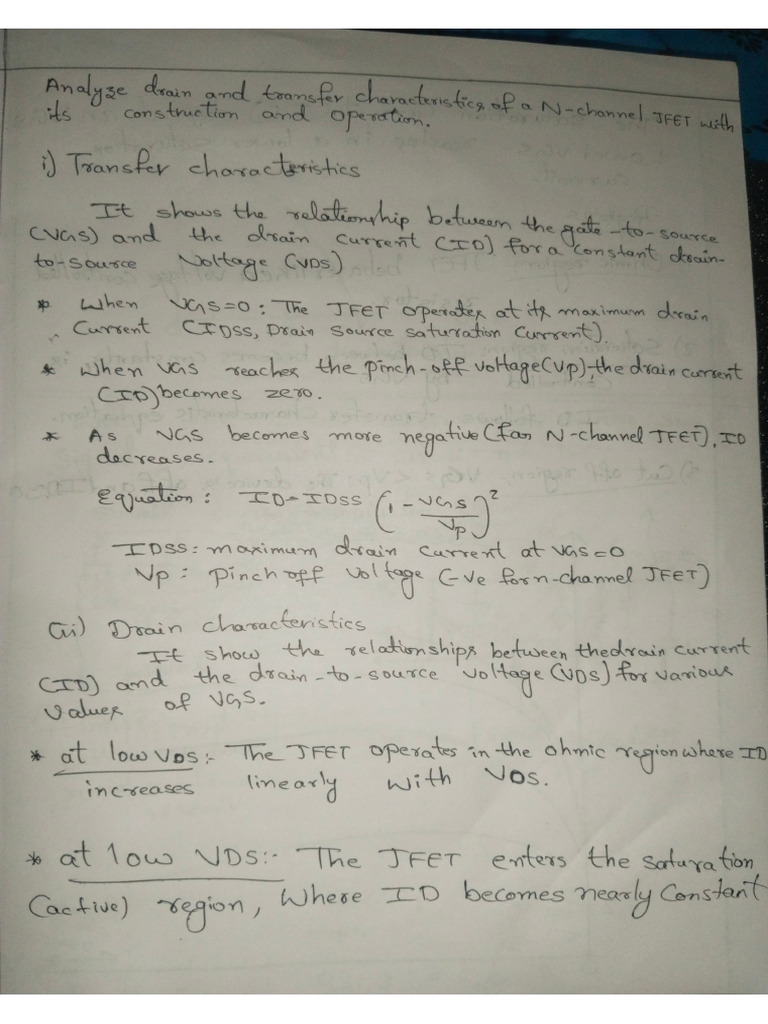 Analyze drain and transfer characteristics of a N-channel JFET with
its construction and operation.
i) Transfer characteristics
It shows the relationship between the gate-to-source
(VGS) and the drain current (ID) for a constant drain-
to-source voltage (VDS)
* When VGS=0: The JFET operates at its maximum drain
current (IDSS, Drain source saturation current).
* When VGS reaches the pinch-off voltage(Vp), the drain current
(ID) becomes zero.
* As VGS becomes more negative (for N-channel JFET), ID
decreases.
Equation: ID=IDSS (1 - VGS/Vp)²
IDSS: maximum drain current at VGS=0
Vp: pinch off voltage (-ve for n-channel JFET)
(ii) Drain characteristics
It show the relationships between the drain current
(ID) and the drain-to-source voltage (VDS) for various
values of VGS.
* at low VDS:- The JFET operates in the ohmic region where ID
increases linearly with VDS.
* at low VDS:- The JFET enters the saturation
(active) region, where ID becomes nearly constant